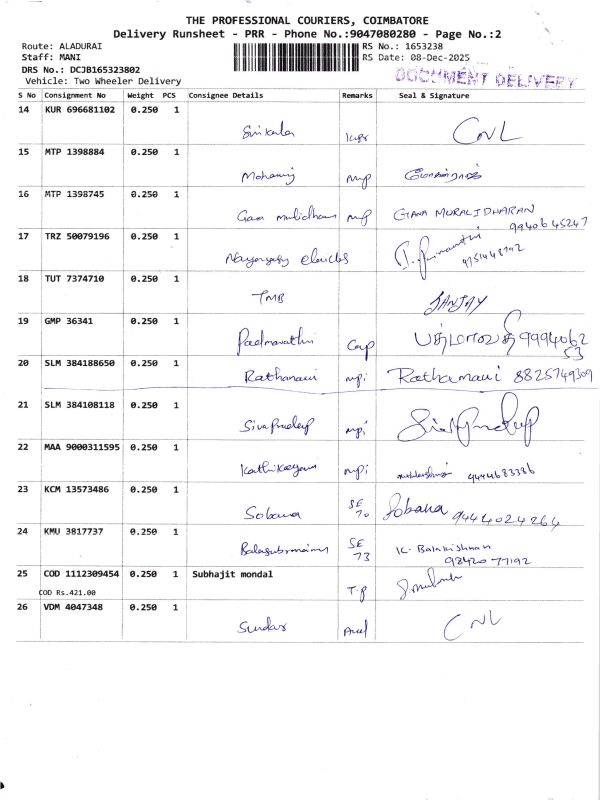 THE PROFESSIONAL COURIERS, COIMBATORE
Delivery Runsheet - PRR - Phone No.:9047080280 - Page No.:2
Route: ALADURAI
Staff: MANI
DRS No.: DCJB165323802
Vehicle: Two Wheeler Delivery
RS No.: 1653238
RS Date: 08-Dec-2025
DOCUMENT DELIVERY
S No Consignment No Weight PCS Consignee Details Remarks Seal & Signature
14 KUR 696681102 0.250 1
Srikala CNL
15 MTP 1398884 0.250 1
Mohanraj mp
16 MTP 1398745 0.250 1
mp GANA MURALIDHARAN
9940645247
17 TRZ 50079196 0.250 1
18 TUT 7374710 0.250 1
TMB SANJAY
19 GMP 36341 0.250 1
Padmavathi பத்மாவதி 9994062
53
20 SLM 384188650 0.250 1
Rathamani mpi Rathamani 8825749309
21 SLM 384108118 0.250 1
Sivapradeep mpi SivaPradeep
22 MAA 9000311595 0.250 1
Kathikeyani mpi 9444683386
23 KCM 13573486 0.250 1
Sobana SE 70 Sobana 9444024264
24 KMU 3817737 0.250 1
SE 73 K. Balakrishnan
98420 77192
25 COD 1112309454 0.250 1 Subhajit mondal
COD Rs.421.00
T.p
26 VDM 4047348 0.250 1
Sundar CNL